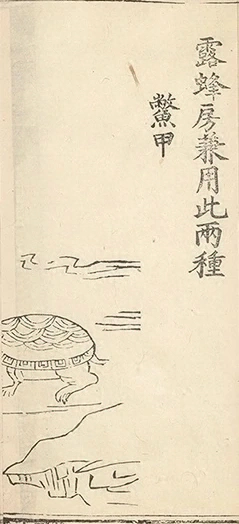 露蜂房兼用此兩種
鱉甲